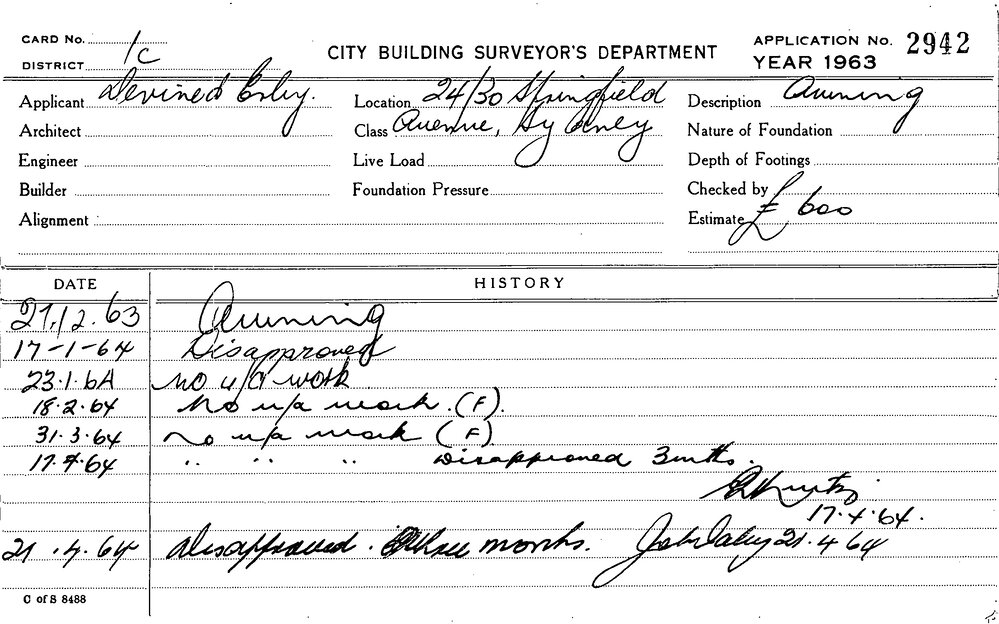 CARD No. 1c
CITY BUILDING SURVEYOR'S DEPARTMENT
APPLICATION No. 2942
DISTRICT
YEAR 1963
Applicant
Location 24/30 Springfield
Description Awning
Architect
Class Avenue, Sydney
Nature of Foundation
Engineer
Live Load
Depth of Footings
Builder
Foundation Pressure
Checked by
Alignment
Estimate £ 600
DATE
HISTORY
27.12.63 Awning
17-1-64 Disapproved
23.1.64 no u/a work
18.2.64 No u/a work. (F).
31.3.64 No u/a work (F)
17.4.64 " " " Disapproved 3mths.
17.4.64.
21.4.64 Disapproved. three months. 21.4 64
C of S 8488